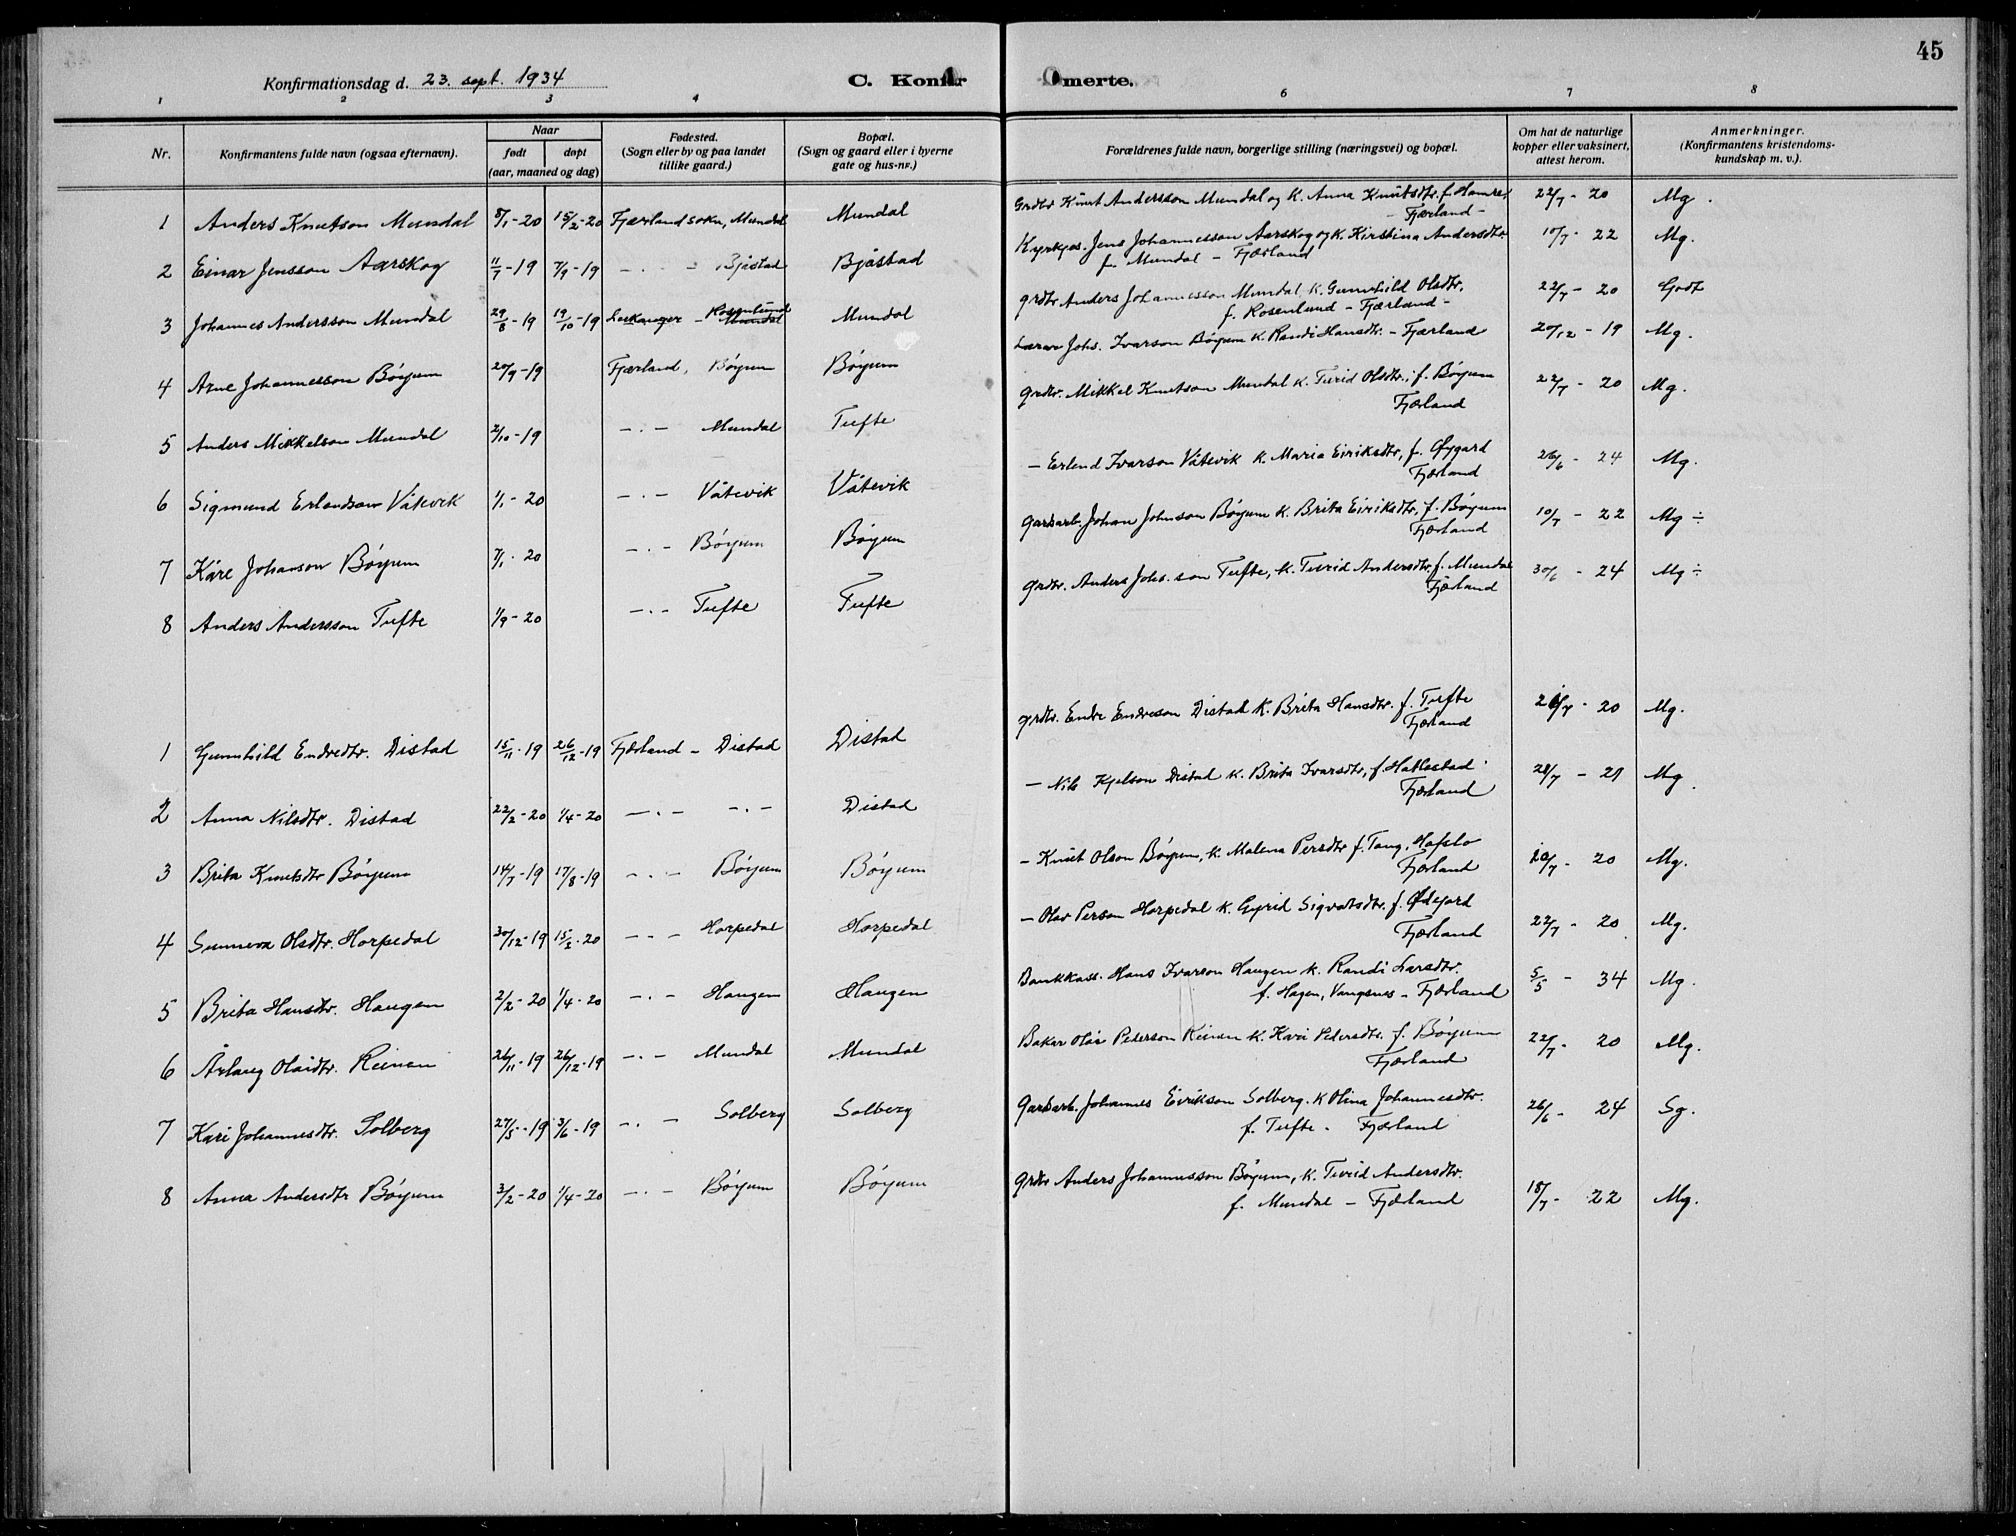 45
Konfirmationsdag d. 23. sept. 1934 C. Konfir merte.
1 2 3 4 6 7 8
Nr. Konfirmantens fulde navn (ogsaa efternavn). Naar født døpt (aar, maaned og dag) Fødested. (Sogn eller by og paa landet tillike gaard.) Bopæl. (Sogn og gaard eller i byerne gate og hus-nr.) Forældrenes fulde navn, borgerlige stilling (næringsvei) og bopæl. Om hat de naturlige kopper eller vaksinert, attest herom. Anmerkninger. (Konfirmantens kristendoms-kundskap m. v.).
1 Anders Knutson Mundal 8/1-20 15/2-20 Fjærland sokn, Mundal Mundal Grdbr Knut Andersson Mundal og k. Anna Knutsdtr. f. Hamre, - Fjærland - 22/7 - 20 Mg.
2 Einar Jensson Aarskog 11/7-19 7/9-19 - . - Bjåstad Bjåstad Kyrkjes. Jens Johannesson Aarskog og k. Kirstina Andersdtr. f. Mundal - Fjærland 10/7 - 22 Mg.
3 Johannes Andersson Mundal 29/8-19 19/10-19 Leikanger - Rosenlund Mundal Mundal grdbr Anders Johannesson Mundal, k. Gunnhild Olsdtr, f. Rosenlund - Fjærland - 22/7 - 20 Godt
4 Arne Johannesson Bøyum 20/9-19 Fjærland, Bøyum Bøyum Lærar Johs. Ivarson Bøyum k. Randi Hansdtr. - Fjærland 20/12 - 19 Mg.
5 Anders Mikkelson Mundal 2/10-19 - . - Mundal Tufte grdbr. Mikkel Knutson Mundal k. Turid Olsdtr., f. Bøyum Fjærland 22/7 - 20 Mg.
6 Sigmund Erlendson Våtevik 1/1-20 - . - Våtevik Våtevik - Erlend Ivarson Våtevik k. Maria Eiriksdtr, f. Øygard Fjærland 26/6 - 24 Mg.
7 Kåre Johanson Bøyum 7/1-20 - . - Bøyum Bøyum Gardarb. Johan Johnson Bøyum k. Brita Eiriksdtr, f. Bøyum Fjærland 10/7 - 22 Mg ÷
8 Anders Andersson Tufte 1/9-20 - . - Tufte Tufte grdbr. Anders Johs.son Tufte, k. Turid Andersdtr f. Mundal Fjærland 30/6 - 24 Mg ÷
1 Gunnhild Endredtr. Distad 15/11-19 26/12-19 Fjærland - Distad Distad grdbr. Endre Endreson Distad k. Brita Hansdtr. f. Tufte Fjærland - 20 Mg.
2 Anna Nilsdtr. Distad 22/2-20 1/4-20 - . - - . - Distad - Nils Kjelson Distad k. Brita Ivarsdtr, f. Hatlestad Fjærland 28/7 - 21 Mg.
3 Brita Knutsdtr Bøyum 14/7-19 17/8-19 - . - Bøyum Bøyum - Knut Olson Bøyum, k. Malena Persdtr f. Tang, Hafslo Fjærland - 20 Mg.
4 Sunneva Olsdtr. Horpedal 30/12-19 15/2-20 - . - Horpedal Horpedal - Olav Person Horpedal k. Gyrid Sigvatsdtr. f. Ødegard Fjærland 22/7 - 20 Mg.
5 Brita Hansdtr. Haugen 2/2-20 1/4-20 - . - Haugen Haugen Bankkass. Hans Ivarson Haugen k. Randi Larsdtr. f. Hagen, Vangsnes - Fjærland 5/5 - 34 Mg.
6 Årlaug Olaidtr. Reinen 26/11-19 26/12-19 - . - Mundal Mundal Bakar Olai Pederson Reinen k. Kari Pedersdtr. f. Bøyum Fjærland 22/7 - 20 Mg.
7 Kari Johannesdtr. Solberg 27/5-19 -19 - . - Solberg Solberg Gardarb. Johannes Eirikson Solberg. k Olina Johannesdtr. f. Tufte. Fjærland 26/6 - 24 Sg.
8 Anna Andersdtr Bøyum 3/2-20 1/4-20 - . - Bøyum Bøyum Grdbr Anders Johannesson Bøyum, k. Turid Andersdtr. f. Mundal - Fjærland 18/7 - 22 Mg.